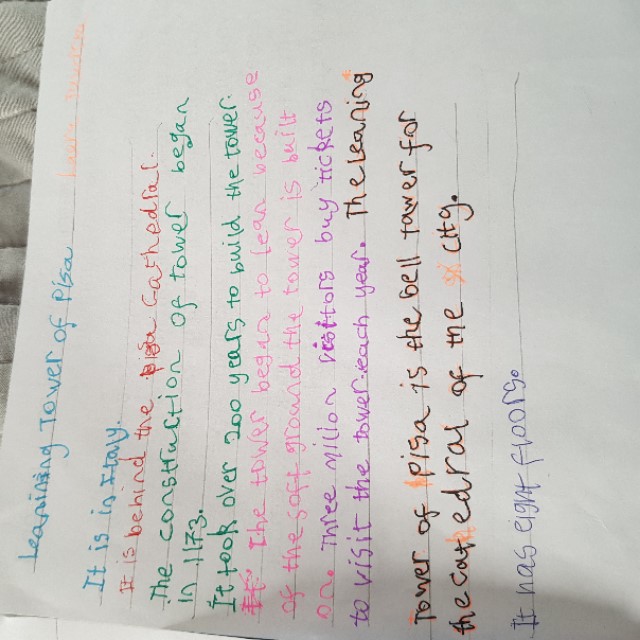 Leaninng Tower of Pisa
It is in Itay.
It is behind the pisa Cathedral.
The construction of tower began
in 1173.
It took over 200 years to build the tower.
The tower began to lean because
of the soft ground the tower is built
on. Three millon visitors buy tickets
to visit the tower each year. The leaning
Tower of Pisa is the bell tower for
the cathedral of the city.
It has eight floors.